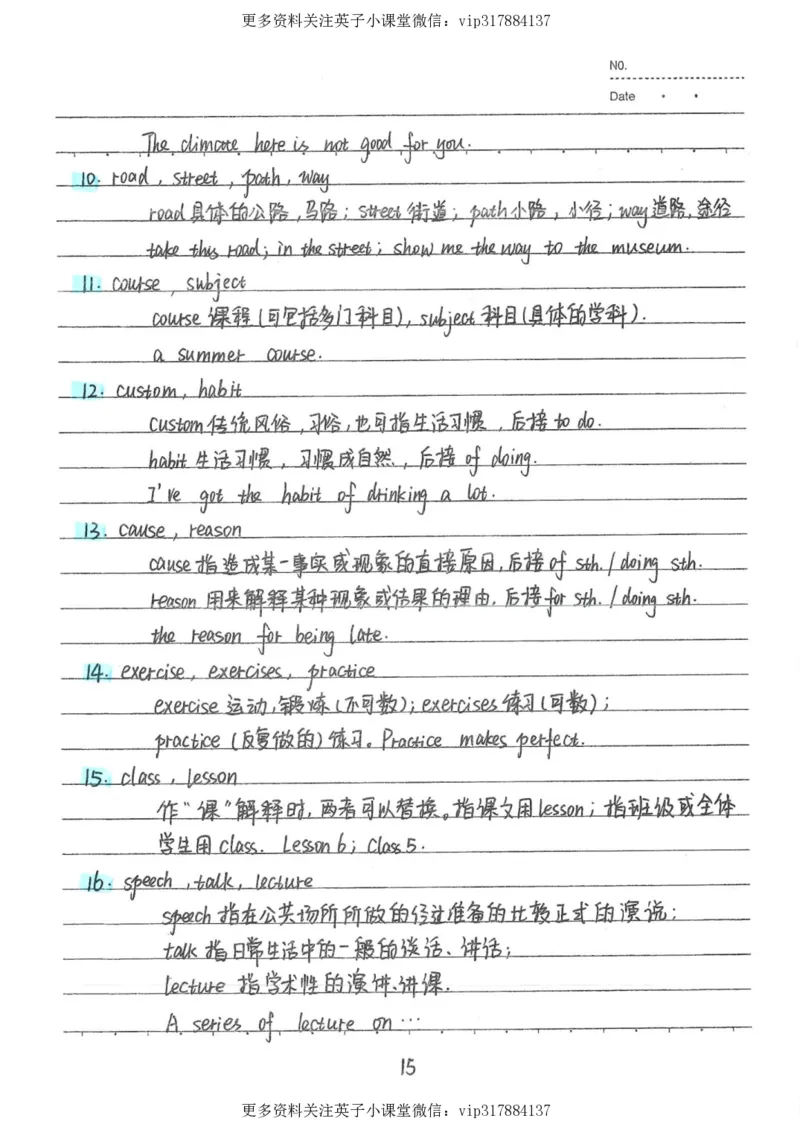 更多资料关注英子小课堂微信：vip317884137
NO.
Date
The climate here is not good for you.
10. road, street, path, way
road具体的公路,马路; street街道; path小路,小径; way道路,途径
take this road; in the street; show me the way to the museum.
11. course, subject
course 课程(可包括多门科目), subject 科目(具体的学科).
a summer course.
12. custom, habit
custom传统风俗,习俗,也可指生活习惯,后接to do.
habit 生活习惯,习惯成自然,后接 of doing.
I've got the habit of drinking a lot.
13. cause, reason
cause指造成某一事实或现象的直接原因,后接of sth./doing sth.
reason 用来解释某种现象或结果的理由,后接for sth./doing sth.
the reason for being late.
14. exercise, exercises, practice
exercise 运动,锻炼(不可数); exercises练习(可数);
practice (反复做的)练习。Practice makes perfect.
15. class, lesson
作“课”解释时,两者可以替换。指课文用lesson; 指班级或全体
学生用 class. Lesson 6; Class 5.
16. speech, talk, lecture
speech 指在公共场所所做的经过准备的比较正式的演说;
talk 指日常生活中的一般的谈话、讲话;
lecture 指学术性的演讲、讲课.
A series of lecture on …
15
更多资料关注英子小课堂微信：vip317884137